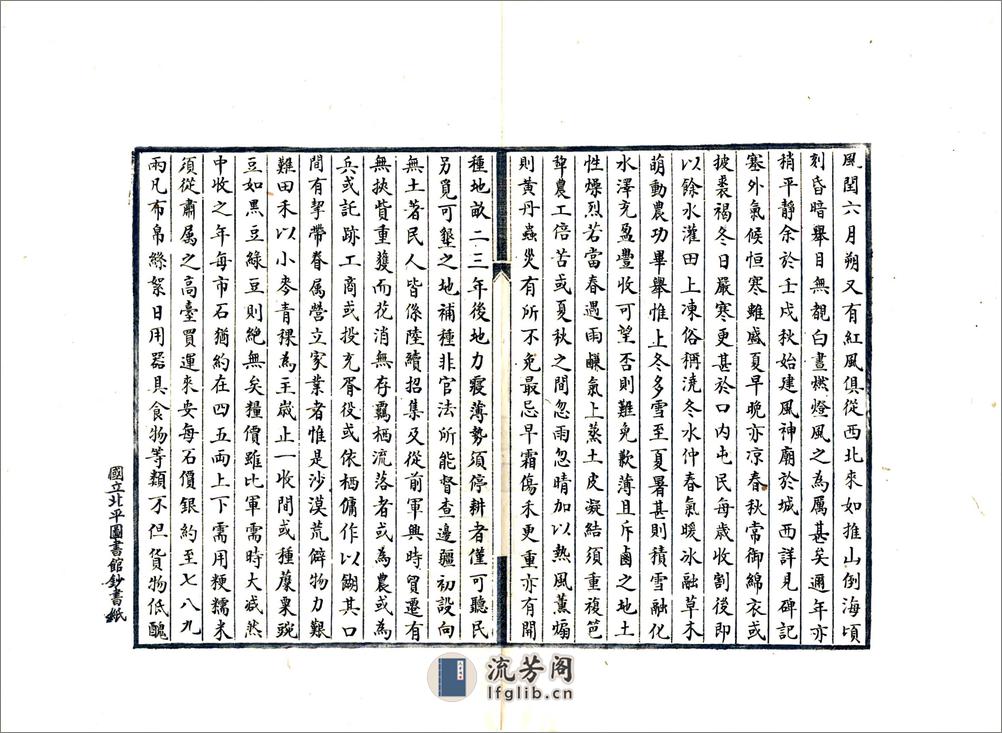 風閏六月朔又有紅風俱從西北來如推山倒海頃
刻昏暗舉目無覩白晝燃燈風之為厲甚矣邇年亦
稍平靜余於壬戌秋始建風神廟於城西詳見碑記
塞外氣候恒寒雖盛夏早晚亦凉春秋常御綿衣或
披裘褐冬日嚴寒更甚於口内屯民每歲收割後即
以餘水灌田上凍俗稱澆冬水仲春氣暖冰融草木
萌動農功畢舉惟上冬多雪至夏暑甚則積雪融化
水澤充盈豐收可望否則難免歉薄且斥鹵之地土
性燥烈若當春遇雨鹻氣上蒸土皮凝結須重複笆
鋅農工倍苦或夏秋之間忽雨忽晴加以熱風薰煽
則黄丹蟲災有所不免最忌早霜傷禾更重亦有開
種地畝二三年後地力寖薄勢須停耕者僅可聽民
另覓可墾之地補種非官法所能督查邊疆初設向
無土著民人皆係陸續招集及從前軍興時貿遷有
無挾貲重獲而花消無存羈栖流落者或為農或為
兵或託跡工商或投充胥役或依栖傭作以餬其口
間有挈帶眷属營立家業者惟是沙漠荒僻物力艱
難田禾以小麥青稞為主歲止一收間或種穈粟豌
豆如黑豆綠豆則絶無矣糧價雖比軍需時大減然
中收之年每市石猶約在四五兩上下需用粳糯米
須從肅属之高臺買運來安每石價銀約至七八九
兩凡布帛絲絮日用器具食物等類不但貨物低醜
國立北平圖書館鈔書紙
流芳阁
lfglib.cn